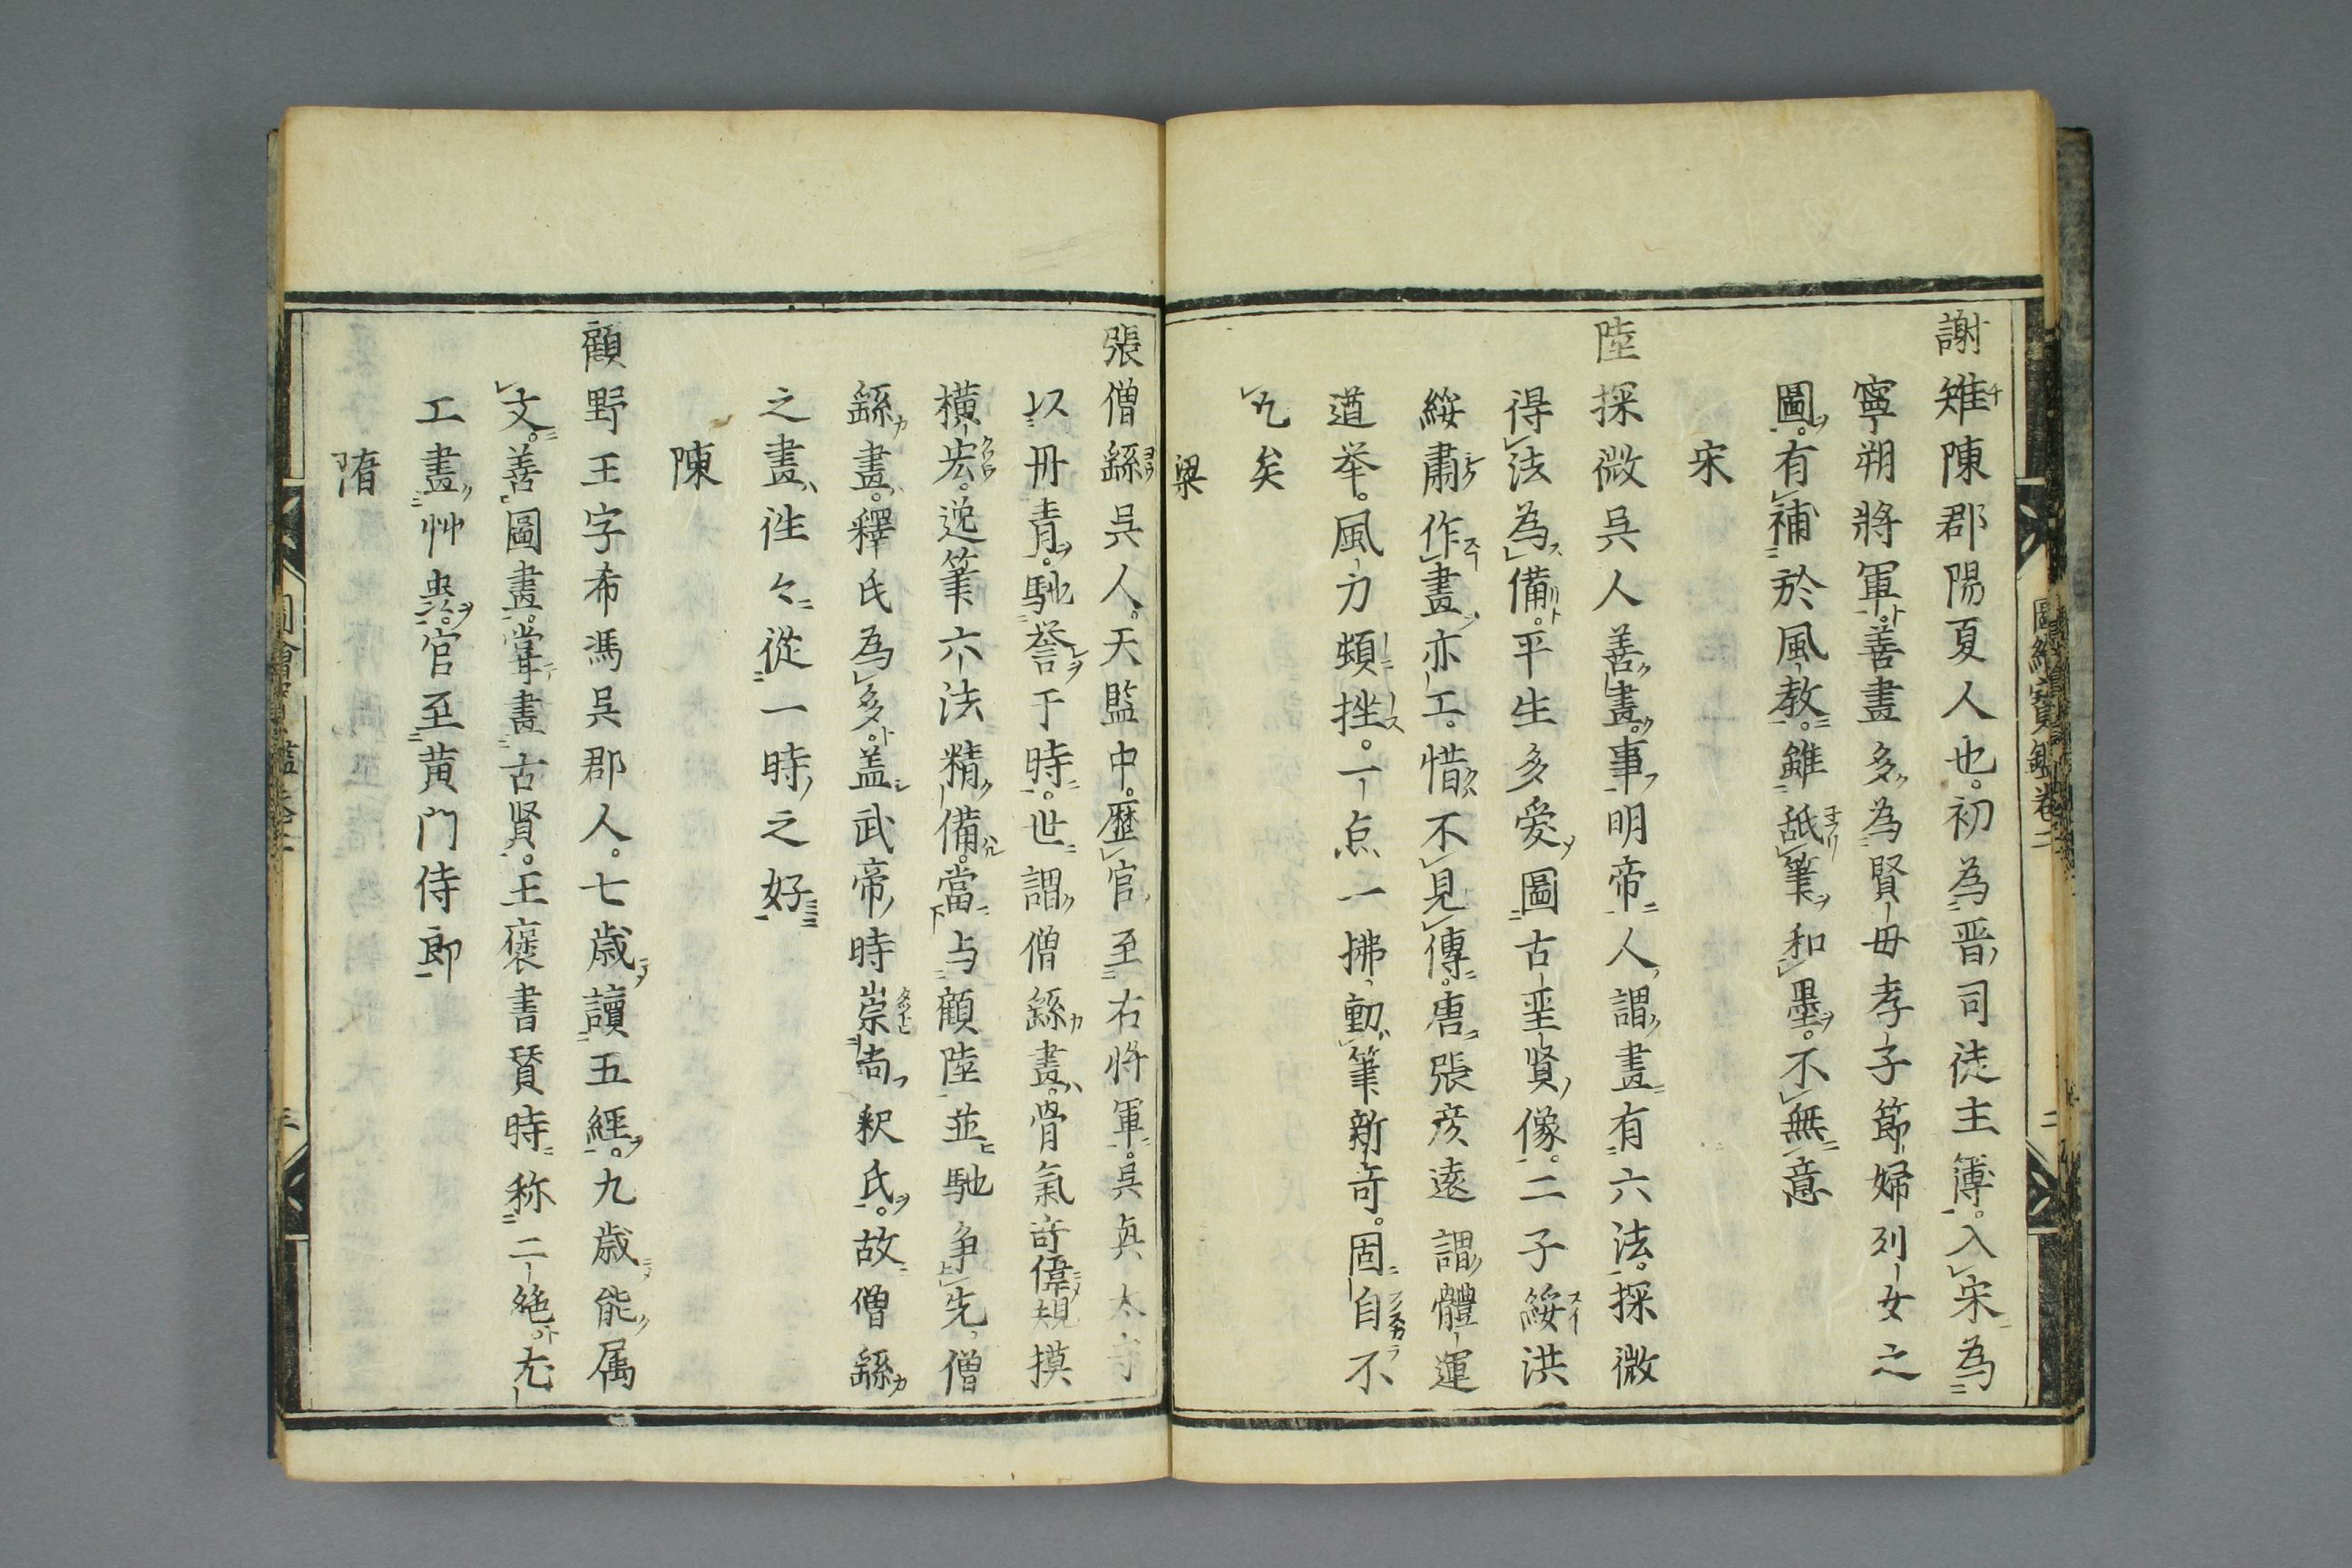 謝雉陳郡陽夏人也。初為晋司徒主簿。入宋為
寧朔將軍。善畫多為賢母孝子節婦列女之
圖。有補於風教。雖舐筆和墨。不無意
宋
陸探微呉人善畫。事明帝人謂畫有六法。探微
得法為備。平生多愛圖古聖賢像。二子綏洪
綏肅作畫亦工。惜不見傳。唐張彦遠謂體運
遒挙。風力頓挫。一点一拂動筆新竒。固自不
凡矣
梁
張僧繇呉人。天監中。歷官至右將軍。呉興太守
以丹青。馳誉于時。世謂僧繇畫。骨氣竒偉規摸
橫宏。逸筆六法精備。當与顧陸並馳争先僧
繇畫。釋氏為多。盖武帝時崇尚釈氏。故僧繇
之畫往々從一時之好
陳
顧野王字希馮呉郡人。七歳讀五經。九歳能属
文。善圖畫。嘗畫古賢。王褒書賛時称二絶尤
工畫艸虫。官至黄門侍郎
隋
圖繪寳鑑卷二
二